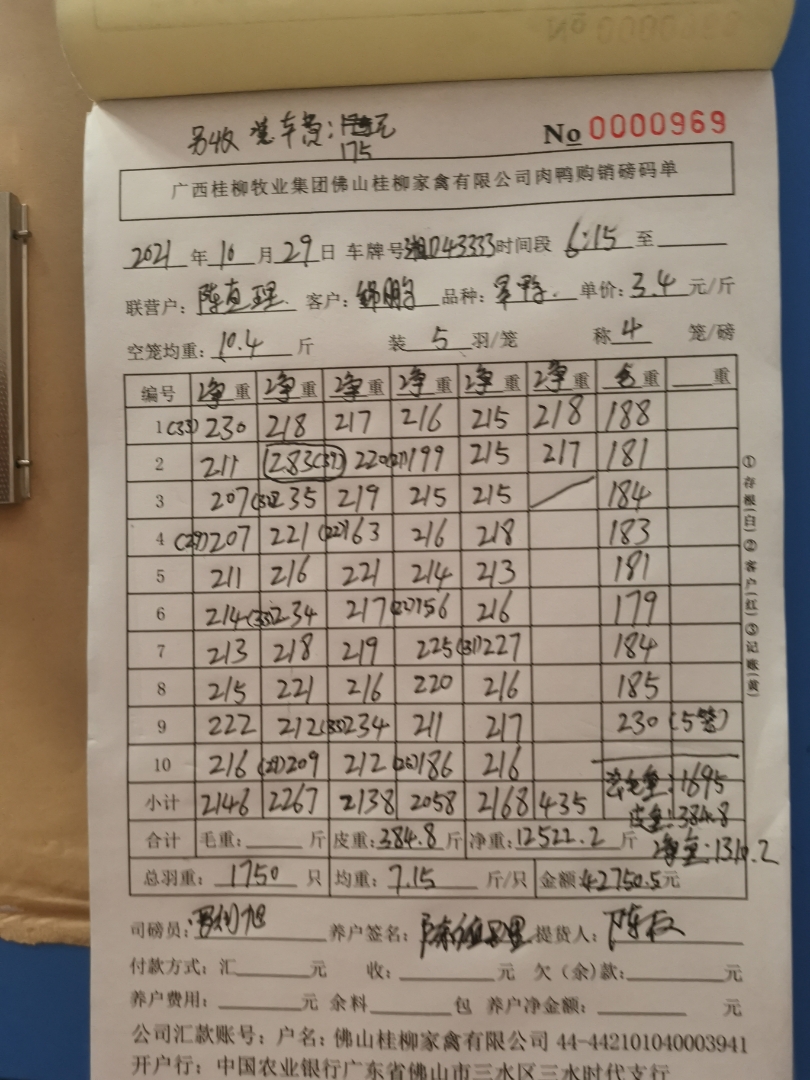 另收 洗车费: 元
175
No 0000969
广西桂柳牧业集团佛山桂柳家禽有限公司肉鸭购销磅码单
2021年10月29日 车牌号湘D43333时间段 6:15 至
联营户: 陈直理 客户: 锦鹏 品种: 单价: 3.4 元/斤
空笼均重: 10.4 斤 装 5 羽/笼 称 4 笼/磅
编号 净重 净重 净重 净重 净重 净重 毛重 重
1 (33) 230 218 217 216 215 218 188
2 211 283 (37) 220 (27) 199 215 217 181
3 207 (32) 235 219 215 215 184
4 (29) 207 221 (22) 163 216 218 183
5 211 216 221 214 213 181
6 214 (33) 234 217 (21) 156 216 179
7 213 218 219 225 (31) 227 184
8 215 221 216 220 216 185
9 222 212 (33) 234 211 217 230 (5笼)
10 216 (29) 209 212 (26) 186 216
总毛重: 1695
小计 2146 2267 2138 2058 2168 435
皮重: 384.8
合计 毛重: 斤 皮重: 384.8 斤 净重: 12522.2 斤
净重: 1310.2
总羽重: 1750 只 均重: 7.15 斤/只 金额: 42750.5元
司磅员: 养户签名: 提货人:
付款方式: 汇 元 收: 元 欠(余)款: 元
养户费用: 元 余料 包 养户净金额: 元
公司汇款账号: 户名: 佛山桂柳家禽有限公司 44-442101040003941
开户行: 中国农业银行广东省佛山市三水区三水时代支行
①存根(白)②客户(红)③记账(黄)